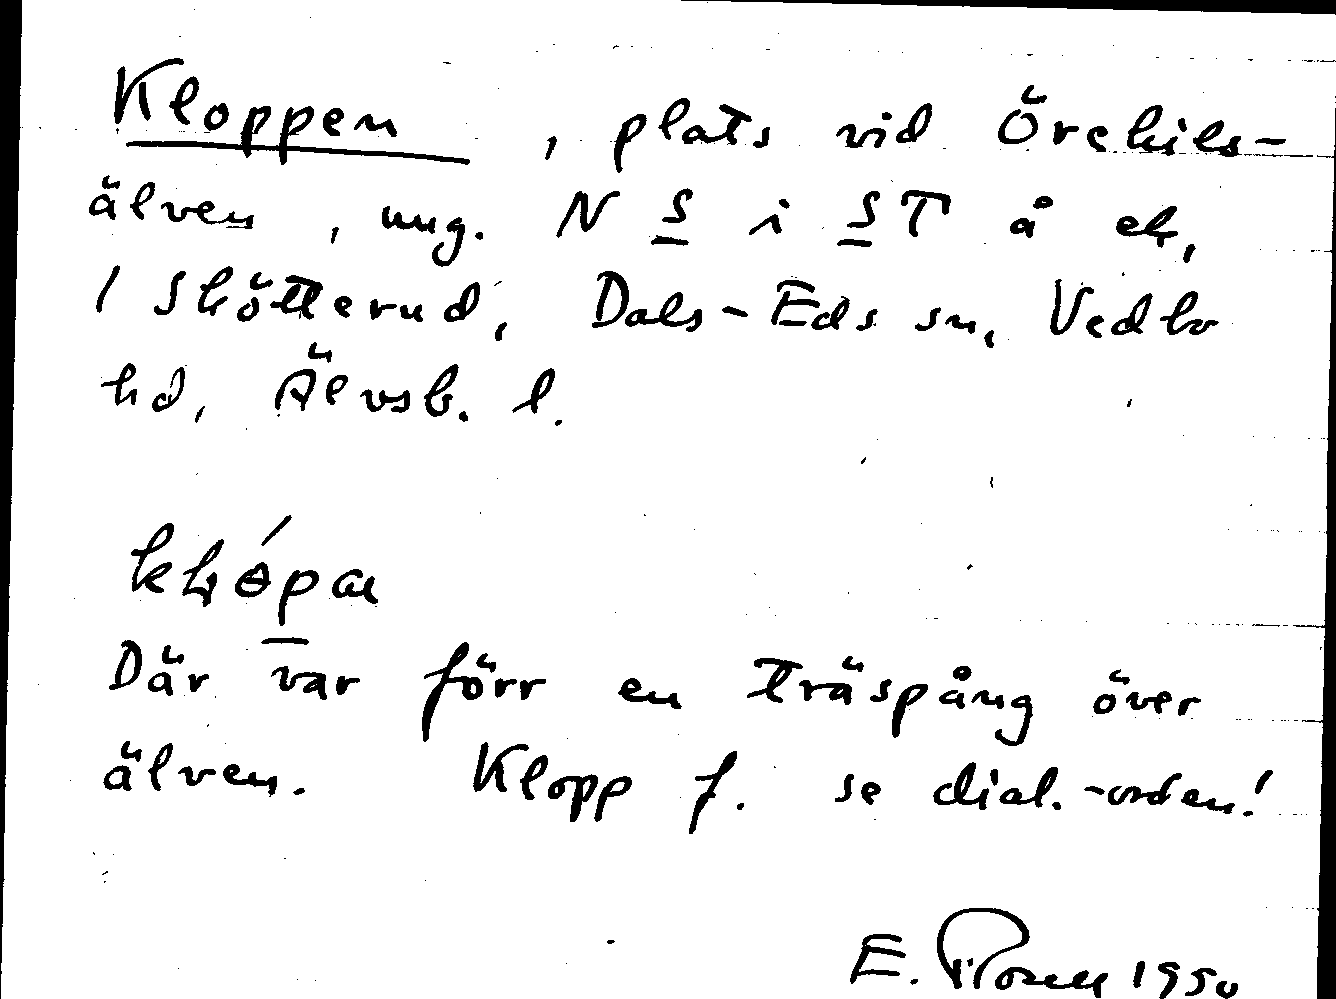 Kloppen, plats vid Örekils-
älven, ung. N S i ST å ek,
1 Skötterud, Dals-Eds sn, Vedbo
hd, Älvsb. l.
Där var förr en träspång över
älven. Klopp f. se dial.-orden!
E. Rosell 1950